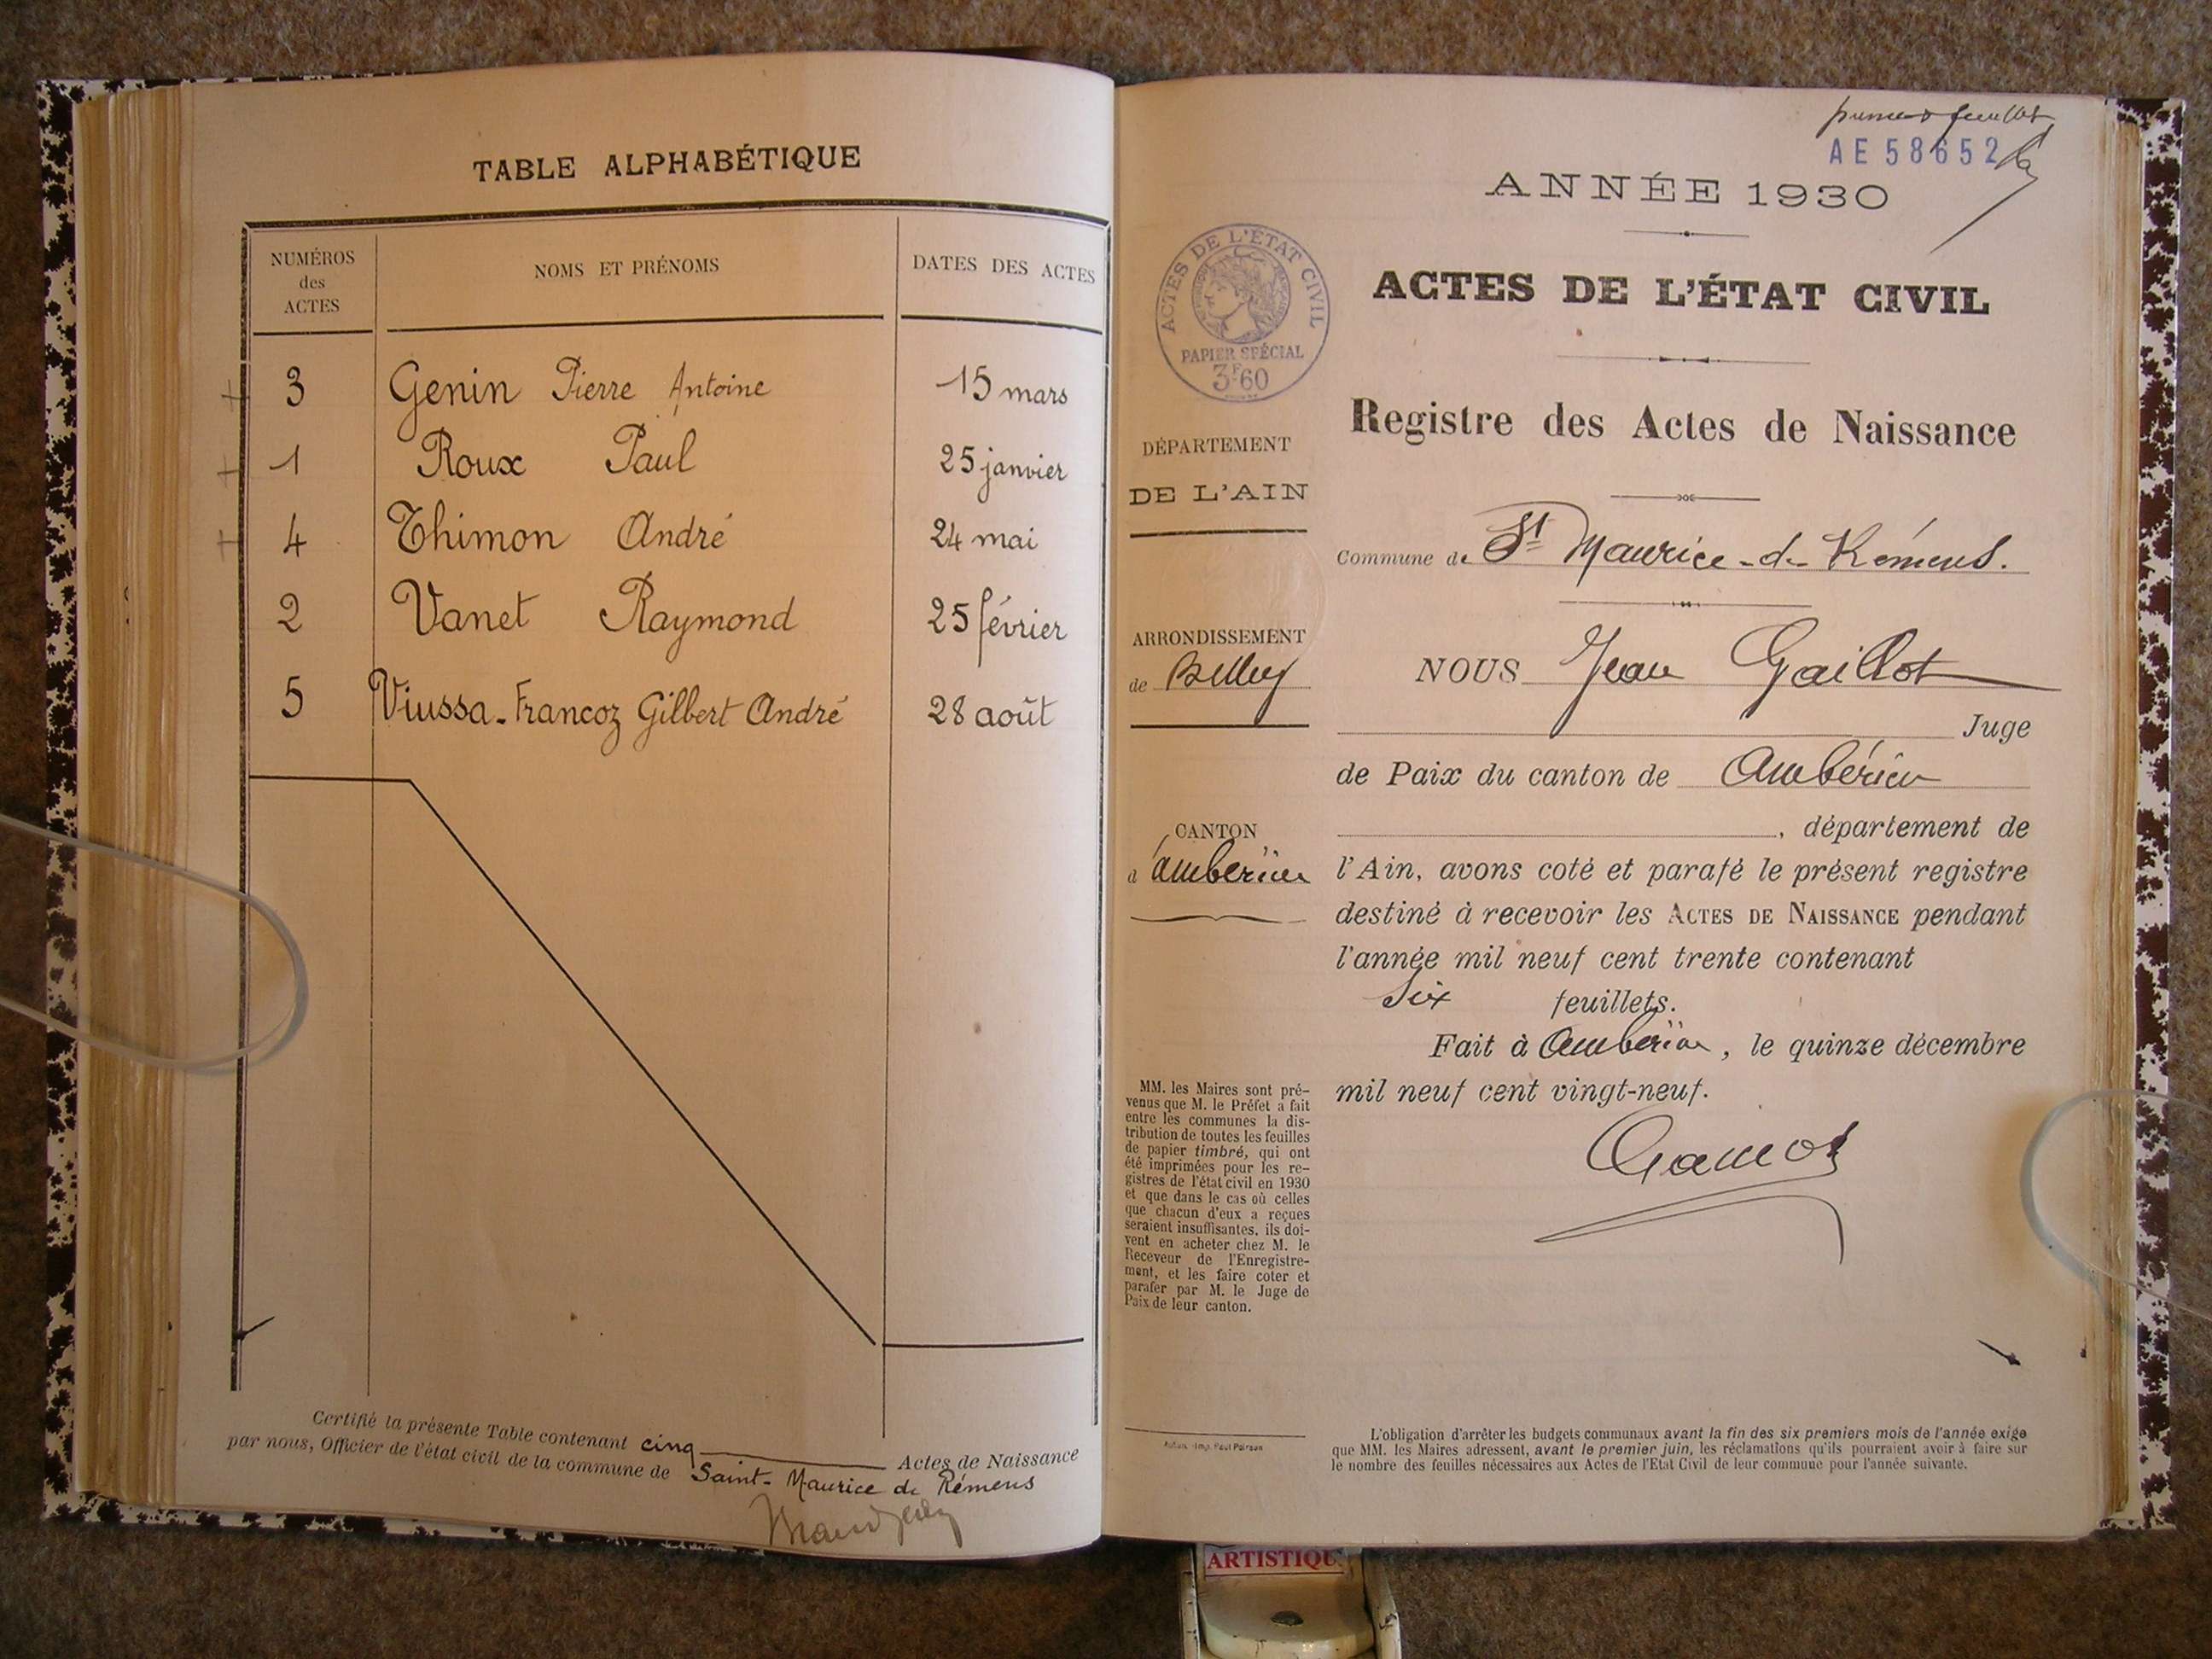 TABLE ALPHABÉTIQUE
NUMÉROS des ACTES
NOMS ET PRÉNOMS
DATES DES ACTES
3 Genin Pierre Antoine 15 mars
1 Roux Paul 25 janvier
4 Thimon André 24 mai
2 Vanet Raymond 25 février
5 Viussa-Francoz Gilbert André 28 août
Certifié la présente Table contenant cinq Actes de Naissance
par nous, Officier de l'état civil de la commune de Saint-Maurice de Rémens
premier feuillet
AE 58652
ANNÉE 1930
ACTES DE L'ÉTAT CIVIL
PAPIER SPÉCIAL
3F60
ACTES DE L'ÉTAT CIVIL
Registre des Actes de Naissance
DÉPARTEMENT
DE L'AIN
Commune de St Maurice-de-Rémens.
ARRONDISSEMENT
de Belley
NOUS Jean Gaillot
Juge
de Paix du canton de Ambérieu
CANTON
d'Ambérieu
, département de
l'Ain, avons coté et parafé le présent registre
destiné à recevoir les ACTES DE NAISSANCE pendant
l'année mil neuf cent trente contenant
Six feuillets.
Fait à Ambérieu, le quinze décembre
mil neuf cent vingt-neuf.
MM. les Maires sont pré-
venus que M. le Préfet a fait
entre les communes la dis-
tribution de toutes les feuilles
de papier timbré, qui ont
été imprimées pour les re-
gistres de l'état civil en 1930
et que dans le cas où celles
que chacun d'eux a reçues
seraient insuffisantes, ils doi-
vent en acheter chez M. le
Receveur de l'Enregistre-
ment, et les faire coter et
parafer par M. le Juge de
Paix de leur canton.
Imp. Paul
L'obligation d'arrêter les budgets communaux avant la fin des six premiers mois de l'année exige
que MM. les Maires adressent, avant le premier juin, les réclamations qu'ils pourraient avoir à faire sur
le nombre des feuilles nécessaires aux Actes de l'Etat Civil de leur commune pour l'année suivante.
ARTISTIQU